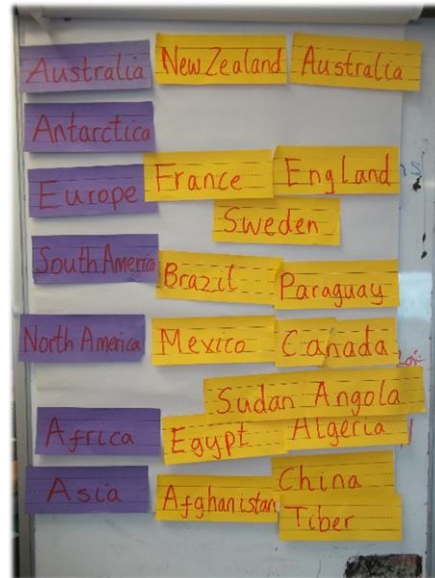 Australia New Zealand Australia
Antarctica
Europe France England
Sweden
South America Brazil Paraguay
North America Mexico Canada
Sudan Angola
Africa Egypt Algeria
Asia Afghanistan China
Tiber